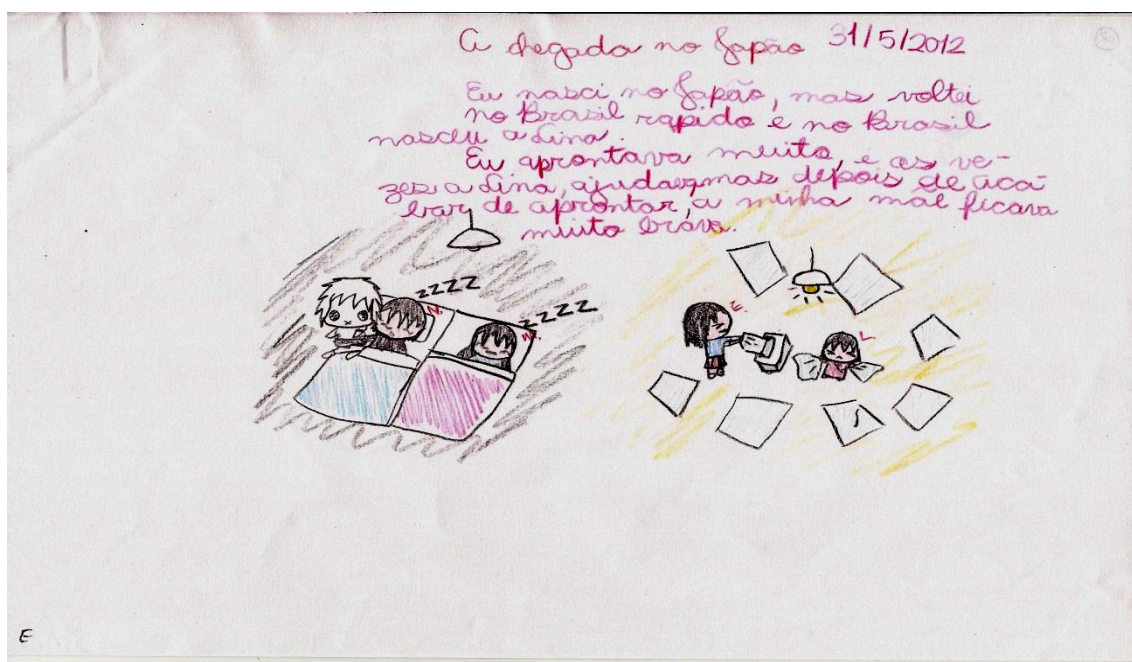 A chegada no Japão 31/5/2012
Eu nasci no Japão, mas voltei
no Brasil rapido e no Brasil
nasceu a Lina.
Eu aprontava muito, e as ve-
zes a Lina, ajudava, mas depois de aca-
bar de aprontar, a minha mãe ficava
muito brava.
zzzz
zzzz
N.
E.
L
E